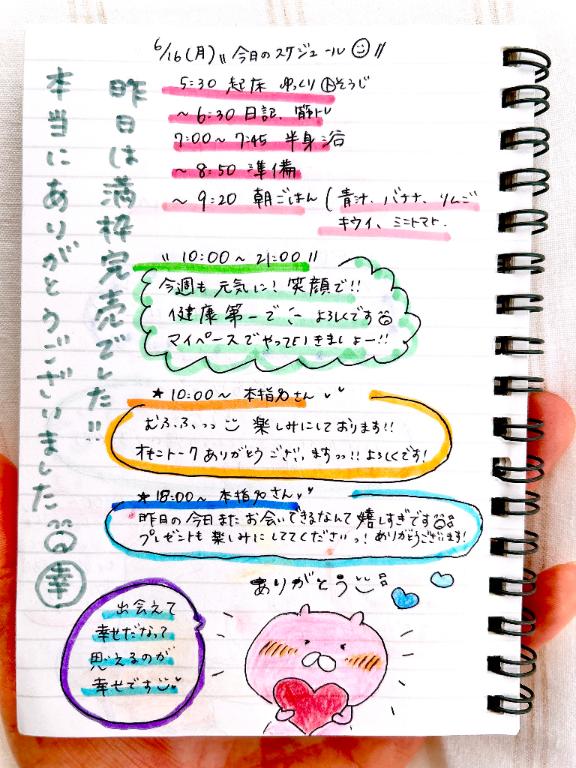 6/16(月) 〃今日のスケジュール〃
5:30 起床 ゆっくり そうじ
〜6:30 日記、筋トレ
7:00〜7:45 半身浴
〜8:50 準備
〜9:20 朝ごはん (青汁、バナナ、リンゴ
キウイ、ミニトマト.
昨日は満枠完売でした!!
本当にありがとうございました 幸
〃10:00〜21:00〃
今週も元気に!笑顔で!!
健康第一で よろしくです
マイペースでやっていきましょー!!
★10:00〜 本指名さん
むふふっっ 楽しみにしております!!
オキニトークありがとうございますっっ!!よろしくです!
★18:00〜 本指名さん
昨日の今日またお会いできるなんて嬉しすぎです
プレゼントも楽しみにしててくださいっ!ありがとうございます!
ありがとう
出会えて
幸せだなって
思えるのが
幸せです